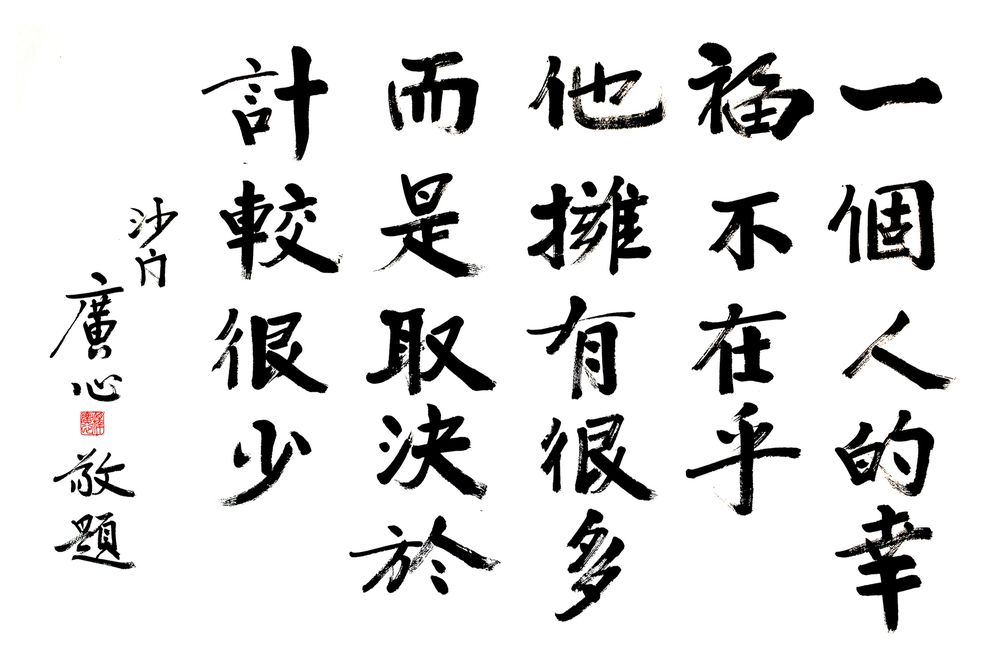 一個人的幸
福不在乎
他擁有很多
而是取決於
計較很少
沙門
廣心
敬題